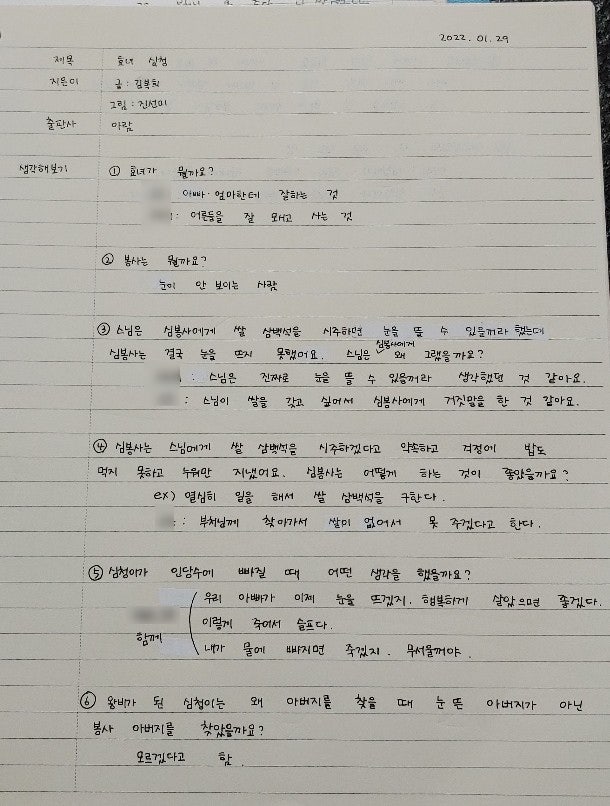 2022. 01. 29
제목 효녀 심청
지은이 글 : 김복희
그림 : 진선미
출판사 아람
생각해보기 ① 효녀가 뭘까요?
아빠 · 엄마한테 잘하는 것
: 어른들을 잘 모시고 사는 것
② 봉사는 뭘까요?
눈이 안 보이는 사람
③ 스님은 심봉사에게 쌀 삼백석을 시주하면 눈을 뜰 수 있을꺼라 했는데
심봉사는 결국 눈을 뜨지 못했어요. 스님은 심봉사에게 왜 그랬을까요?
: 스님은 진짜로 눈을 뜰 수 있을꺼라 생각했던 것 같아요.
: 스님이 쌀을 갖고 싶어서 심봉사에게 거짓말을 한 것 같아요.
④ 심봉사는 스님에게 쌀 삼백석을 시주하겠다고 약속하고 걱정에 밥도
먹지 못하고 누워만 지냈어요. 심봉사는 어떻게 하는 것이 좋았을까요?
ex) 열심히 일을 해서 쌀 삼백석을 구한다.
: 부처님께 찾아가서 쌀이 없어서 못 주겠다고 한다.
⑤ 심청이가 인당수에 빠질 때 어떤 생각을 했을까요?
우리 아빠가 이제 눈을 뜨겠지. 행복하게 살았으면 좋겠다.
이렇게 죽어서 슬프다.
함께 내가 물에 빠지면 죽겠지. 무서울꺼야.
⑥ 왕비가 된 심청이는 왜 아버지를 찾을 때 눈 뜬 아버지가 아닌
봉사 아버지를 찾았을까요?
모르겠다고 함.